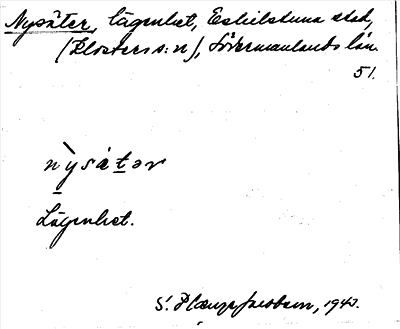 Nysäter, lägenhet, Eskilstuna stad,
(Klosters s:n), Södermanlands län.
51.
nysätər
Lägenhet.
S. 1943.